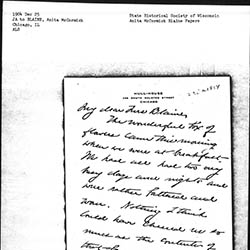 1904 Dec 25
JA to BLAINE, Anita McCormick
Chicago, IL
ALS
State Historical Society of Wisconsin
Anita McCormick Blaine Papers
HULL-HOUSE
335 SOUTH HALSTED STREET
CHICAGO
My dear Mrs Blaine
The wonderful box of
flowers came this morning
when we were at breakfast -
We have all had two very
busy days and nights and
were rather fatigued and
worn. Nothing I think
could have cheered us so
much as the contents of